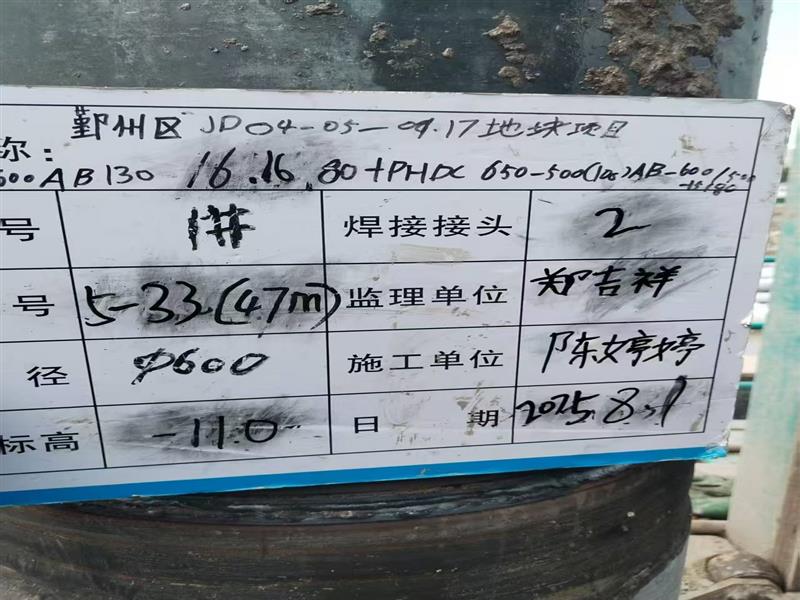 鄞州区 JD04-05-09.17地块项目
称：
600AB130 16.16.80+PHDC 650-500(105)AB-600/500
号 1# 焊接接头 2
号 5-33.(47m) 监理单位 郑吉祥
径 Φ600 施工单位 陈婷婷
标高 -110 日期 2025.8.1